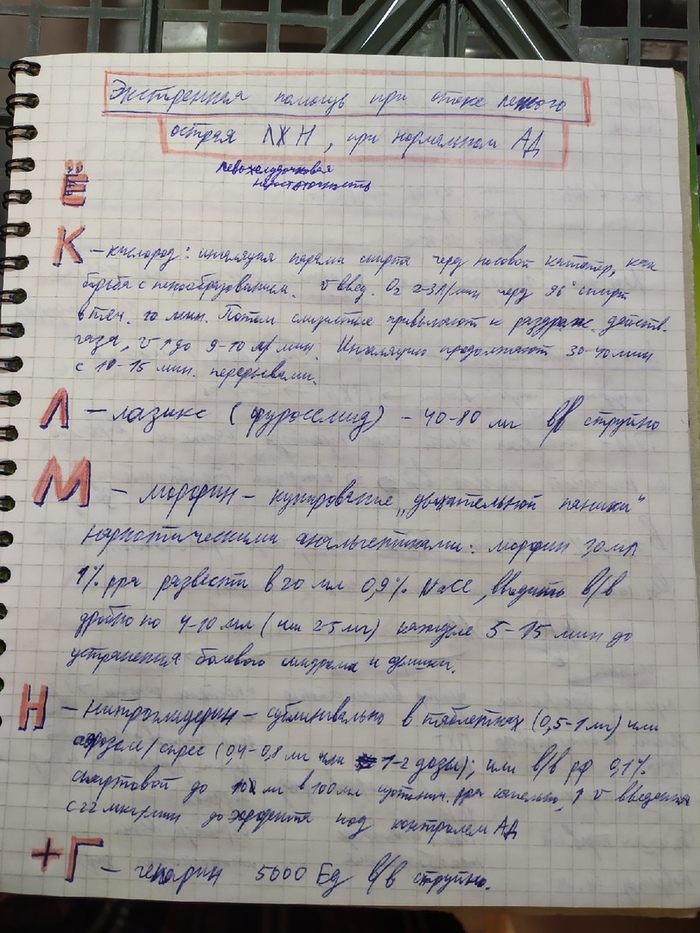 Экстренная помощь при отеке легкого
острая ЛЖН, при нормальном АД
левожелудочковая
недостаточность
Ё
К – кислород: ингаляция парами спирта через носовой катетер, как
борьба с пенообразованием. v введ. O₂ 2-3 л/мин через 96° спирт
в теч. 10 мин. Потом слизистые привыкают к раздраж. действ.
газа, v ↑ до 9-10 л/мин. Ингаляцию продолжают 30-40 мин
с 10-15 мин. перерывами.
Л – лазикс (фуросемид) – 40-80 мг в/в струйно
М – морфин – купирование „дыхательной паники"
наркотическими анальгетиками: морфин
1% р-ра развести в 20 мл 0,9% NaCl, вводить в/в
дробно по 4-10 мл (или 2-5 мг) каждые 5-15 мин до
устранения болевого синдрома и одышки.
Н – нитроглицерин – сублингвально в таблетках (0,5-1 мг) или
аэрозоле/спрее (0,4-0,8 мг или 1-2 дозы); или в/в 0,1%
спиртовой до 10 мл в 100 мл изотонич. р-ра капельно, ↑ v введения
с мкг/мин до эффекта под контролем АД
+Г – гепарин 5000 Ед в/в струйно.